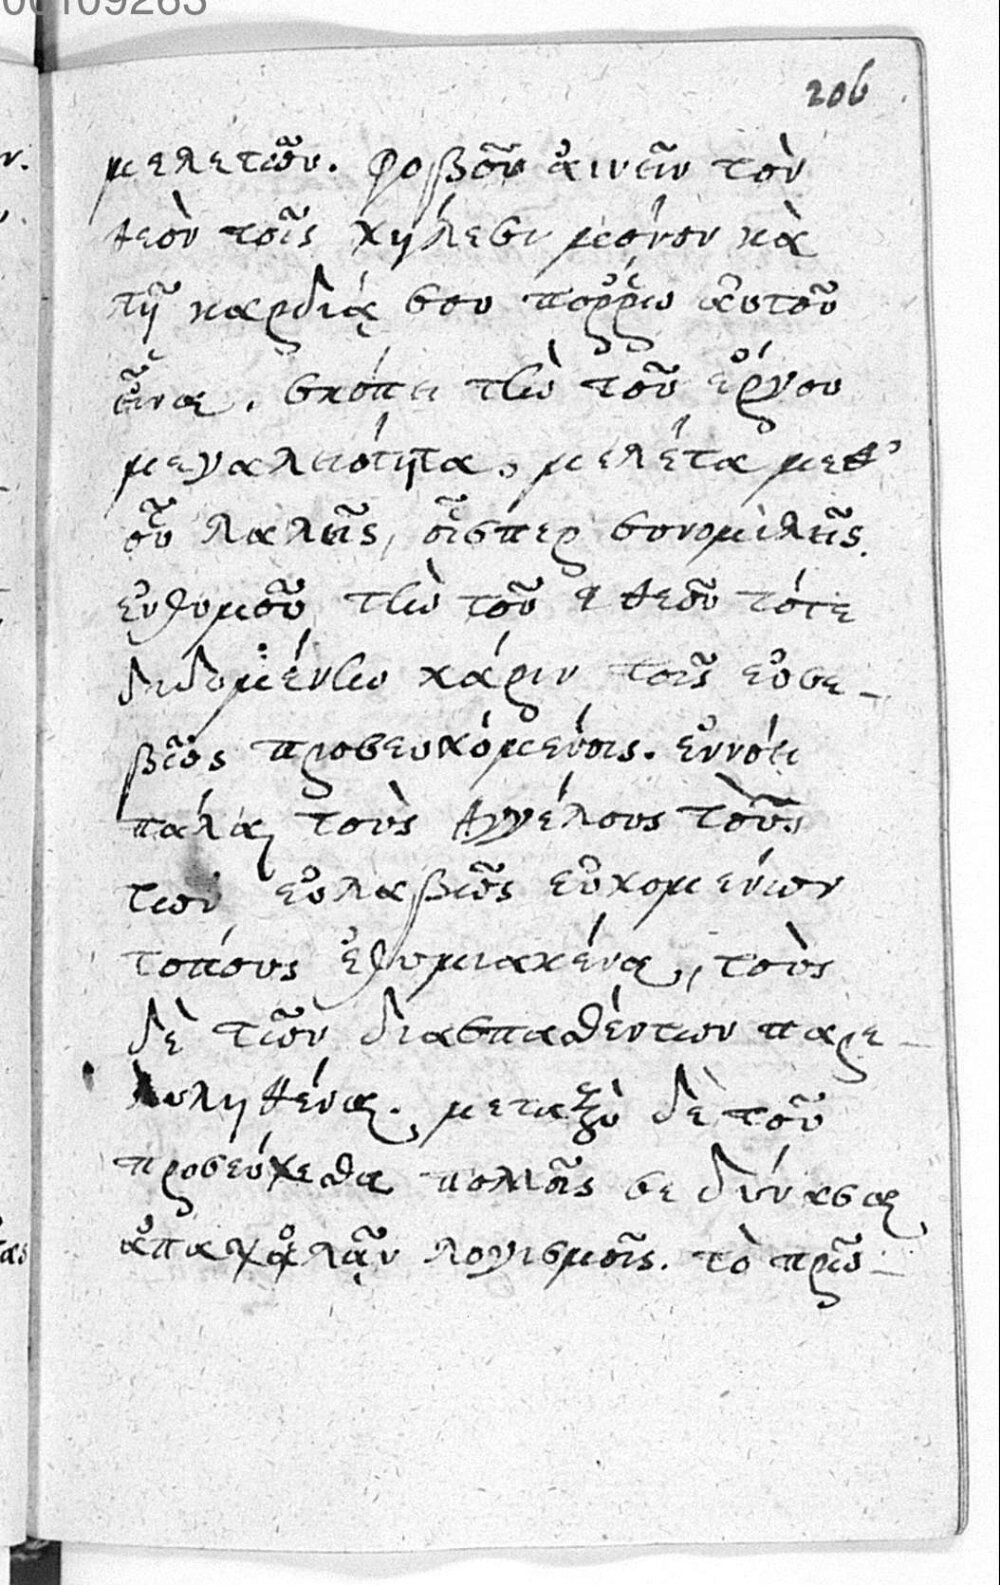 00109263
206
μελετῶν. φοβοῦ ἀινεῖν τὸν
θεὸν τοῖς χήλεσι μόνον κὰ
τῇ καρδίᾳ σου πόῤῥω ἀυτοῦ
εἶναι. σκόπει τὴν τοῦ ἔργου
μεγαλειότητα, μελέτα μεθ'
οὗ λαλεῖς, οἷσπερ συνομιλεῖς.
ἐνθυμοῦ τὴν τοῦ θεοῦ τότε
διδομένην χάριν τοῖς εὐσε-
βῶς προσευχόμενοις. ἐννόει
πάλαι τοὺς Αγγέλους τοὺς
τῶν εὐλαβῶς εὐχομένων
τοπόυς ἐθυμιακέναι, τοὺς
δὲ τῶν διασπαθέντων παρε-
ληλυθέναι. μεταξὺ δὲ τοῦ
προσεύχεθαι πολλοῖς σε δύνασαι
ἀπασχολᾷν λογισμοῖς. τὸ πρῶ-